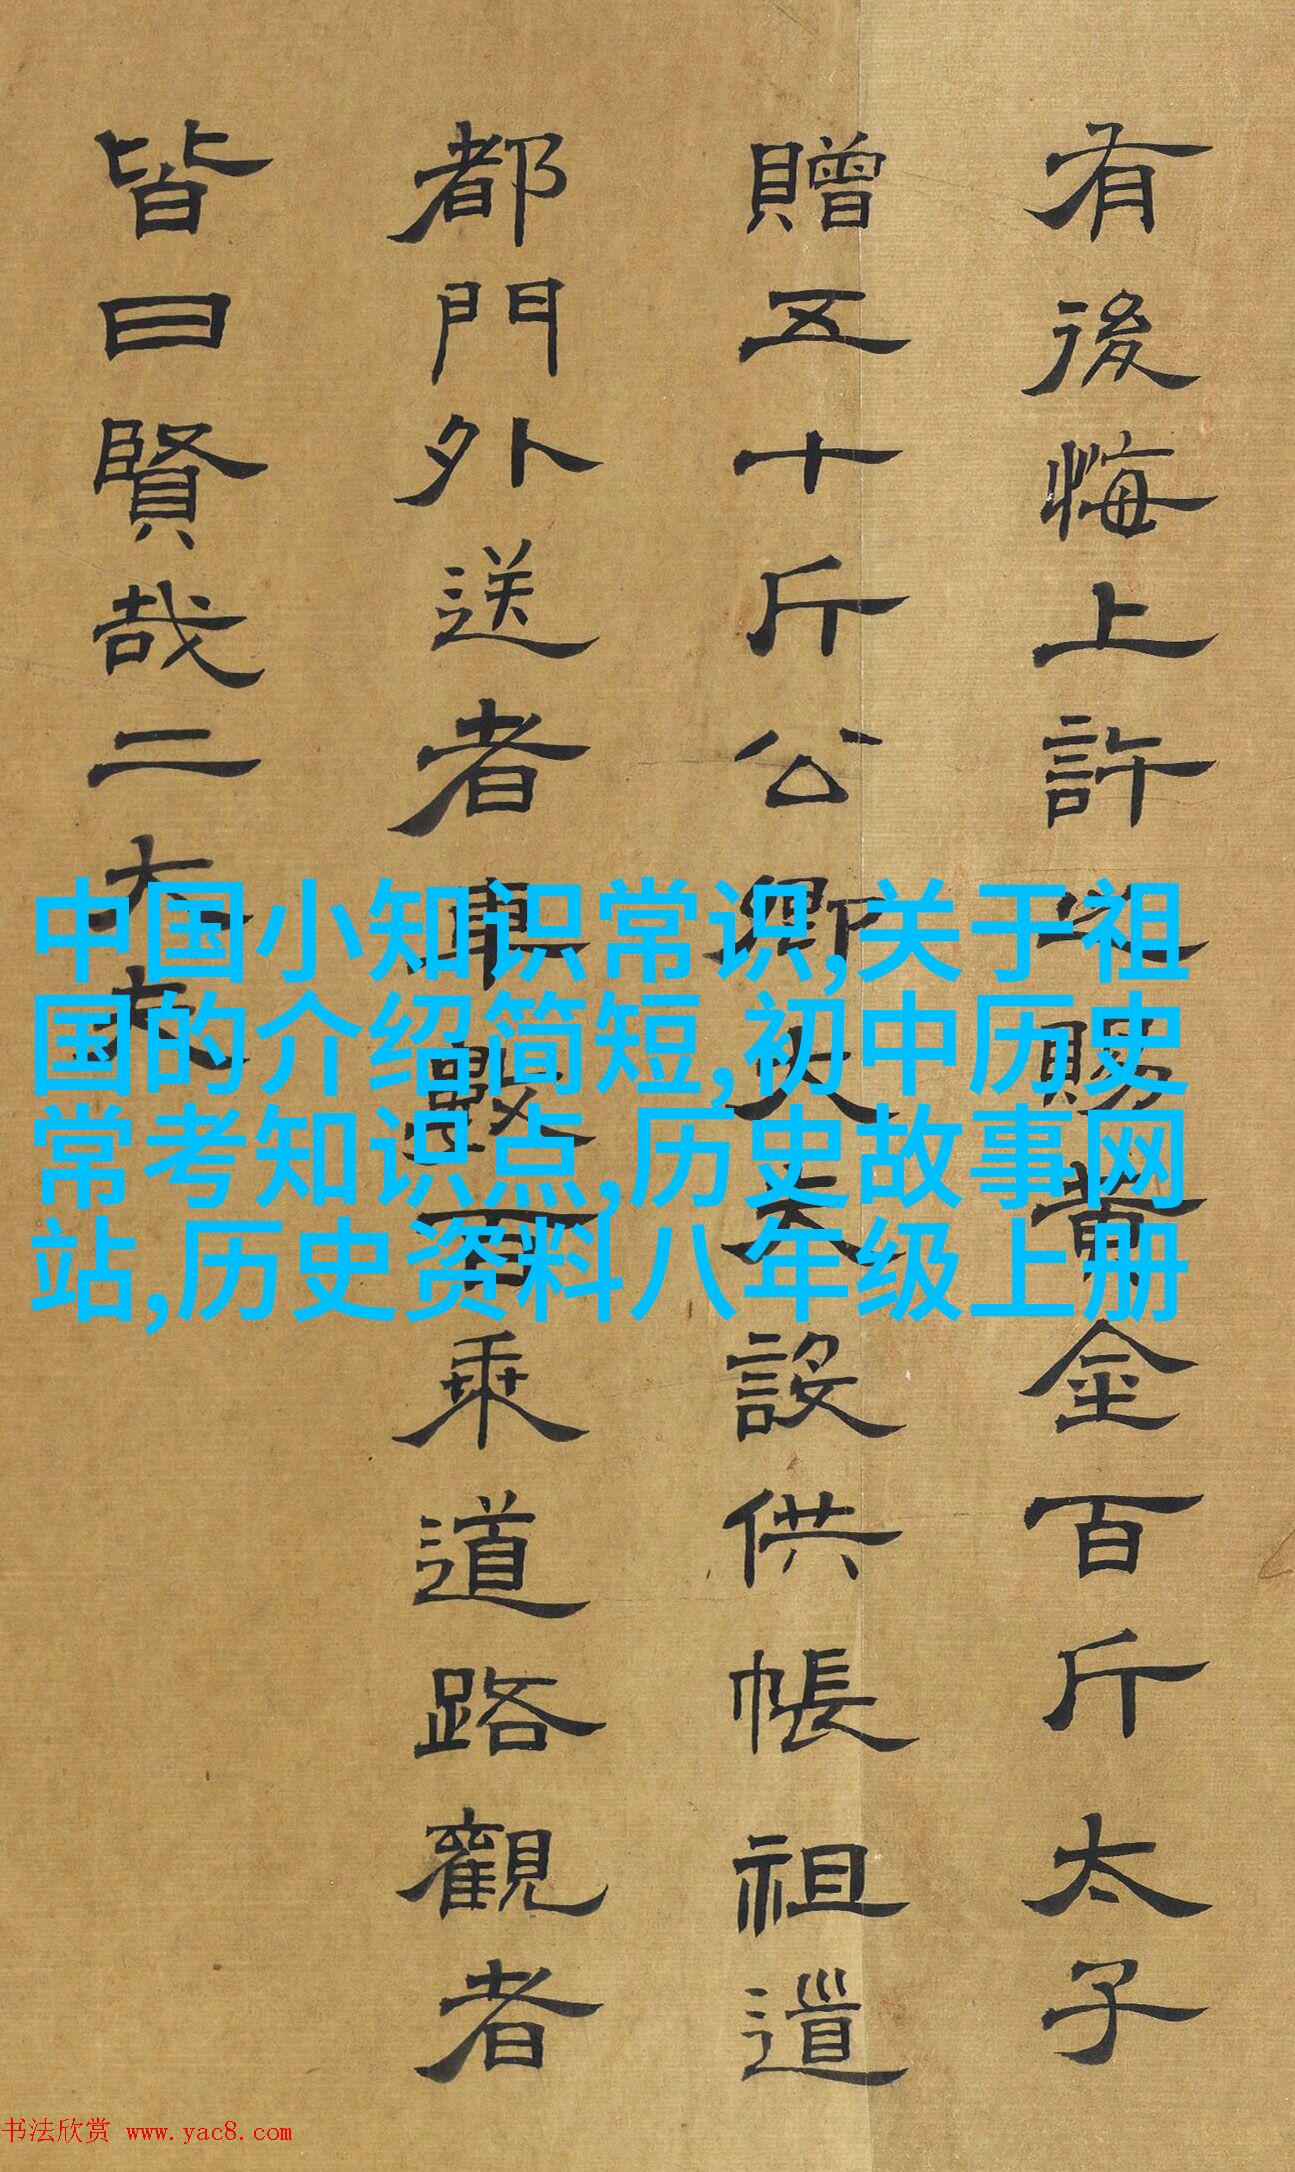 有後悔上許之賜黄金百斤太子
贈五十斤公卿大夫設供帳祖道
都門外送者車數百乘道路觀者
皆曰賢哉二大夫
中国小知识常识,关于祖
国的介绍简短,初中历史
常考知识点,历史故事网
站,历史资料八年级上册
书法欣赏 www.yac8.com